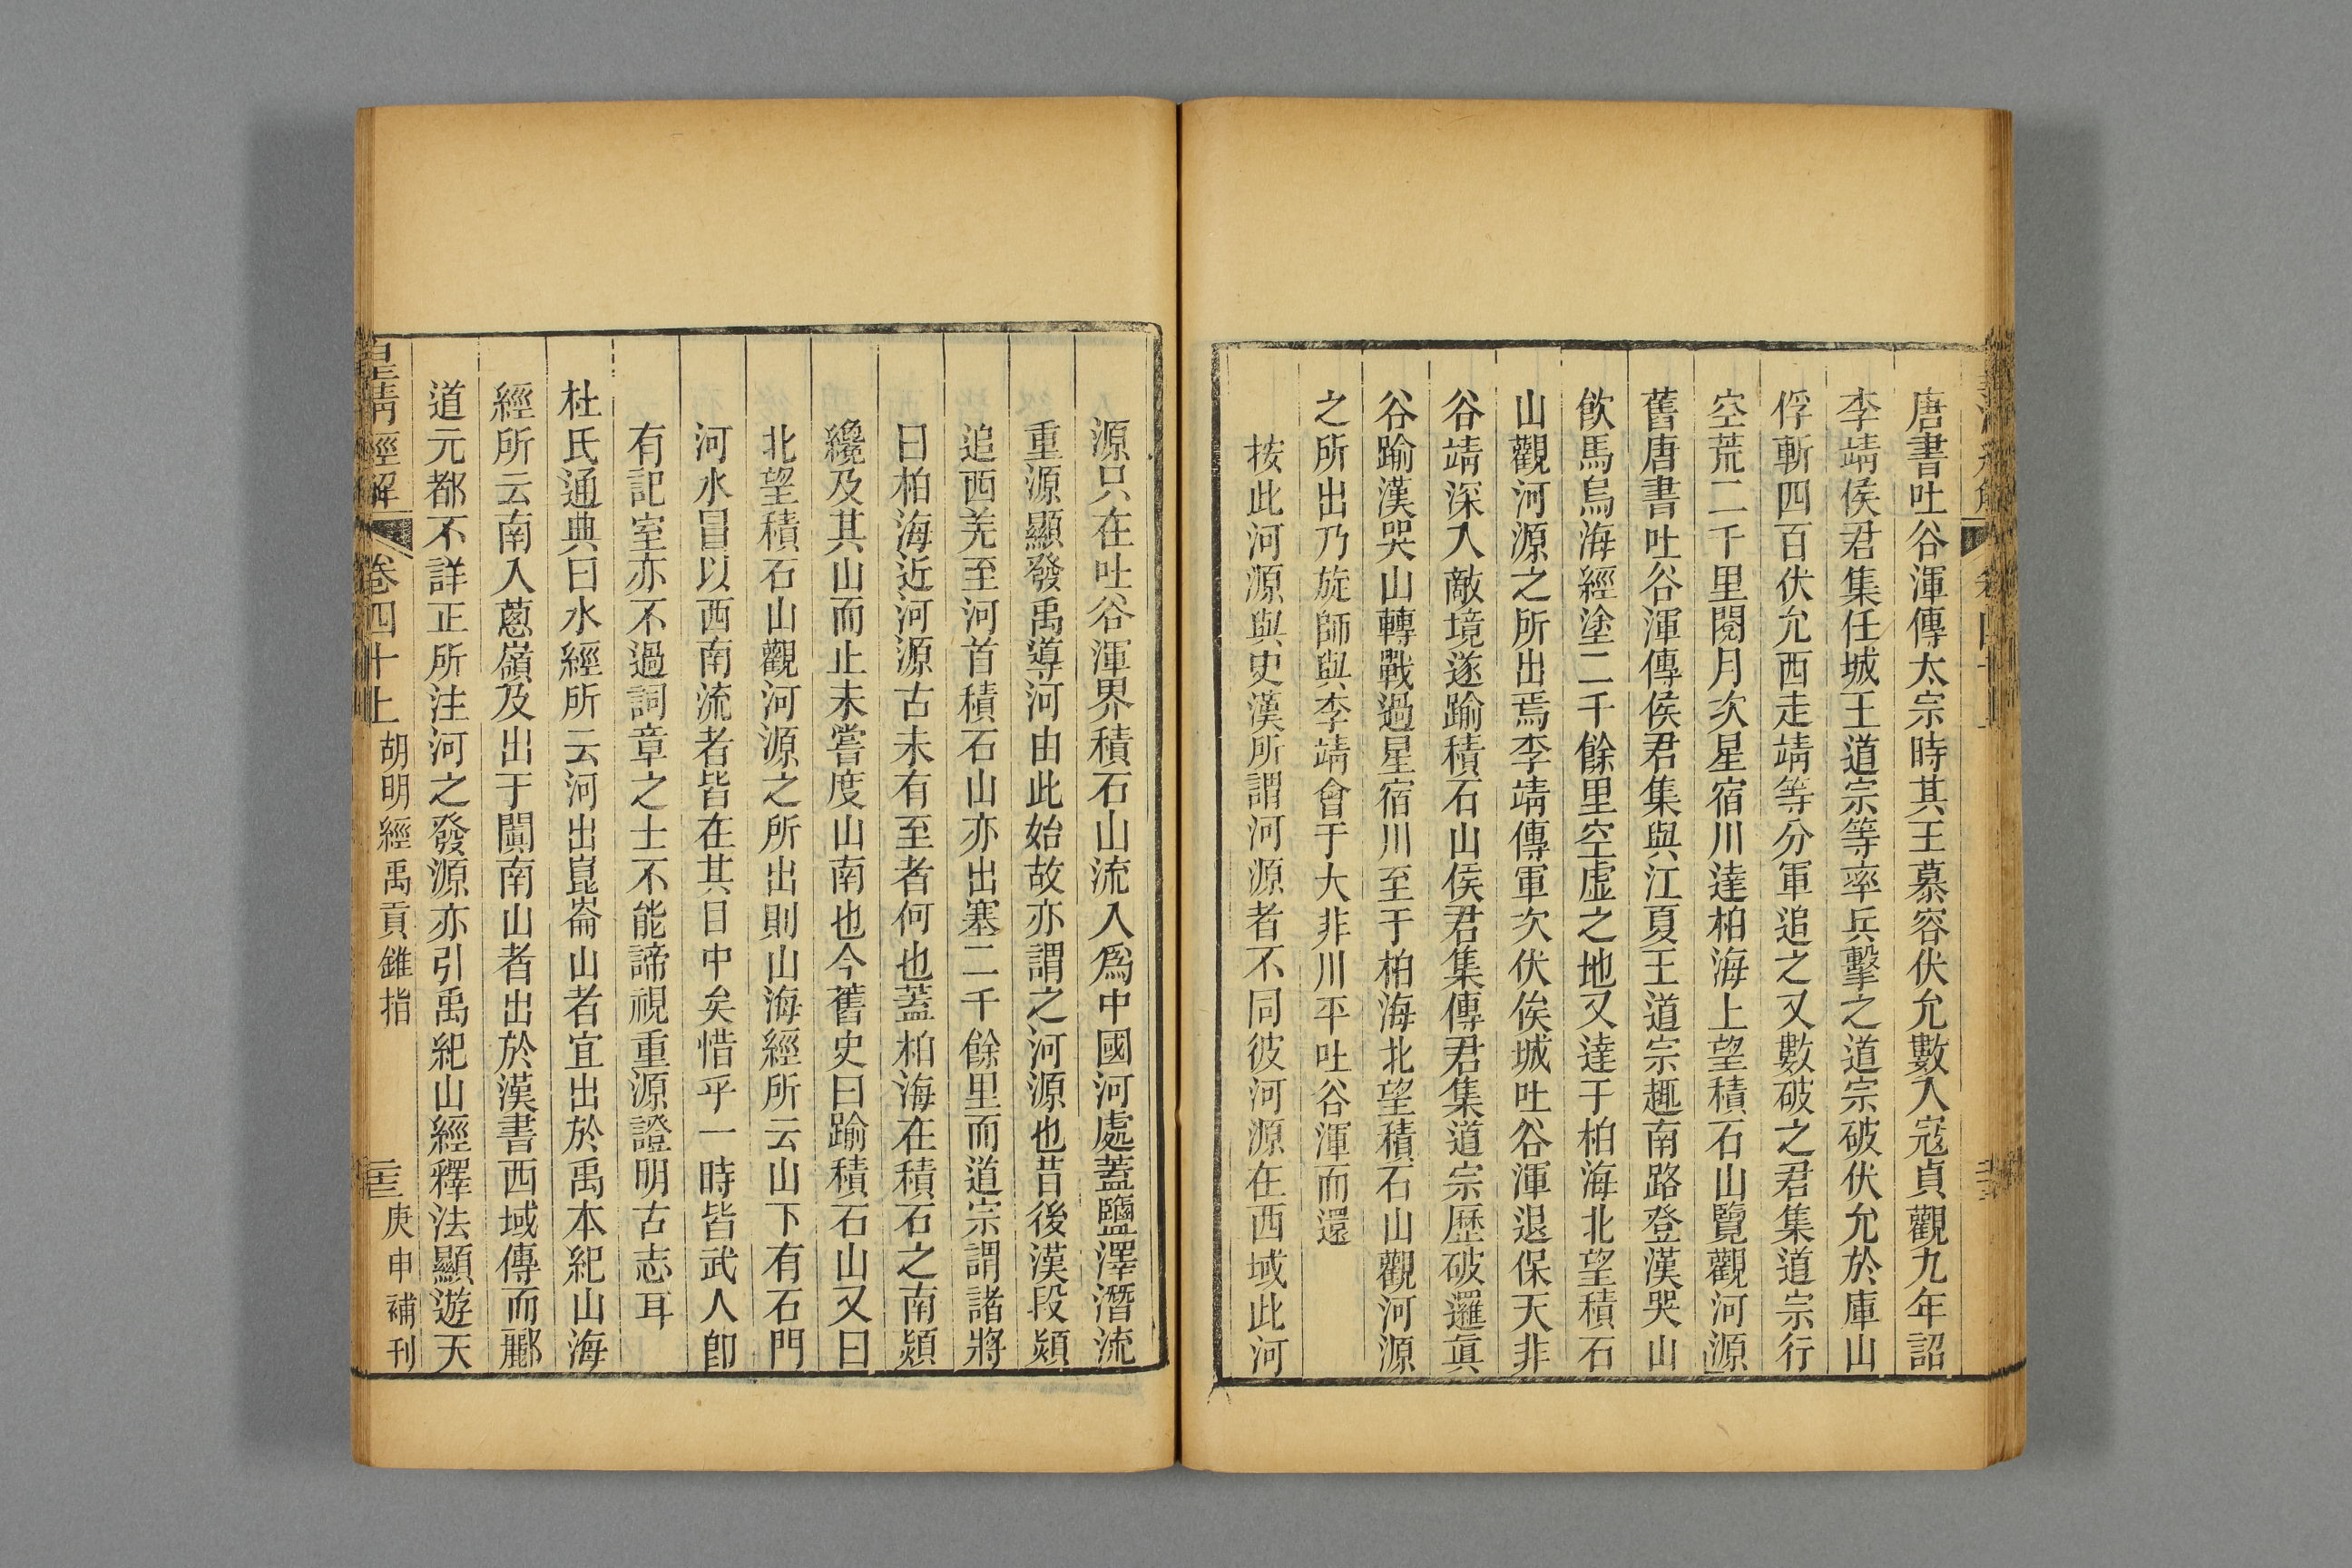 唐書吐谷渾傳太宗時其王慕容伏允數入寇貞觀九年詔
李靖侯君集任城王道宗等率兵擊之道宗破伏允於庫山
俘斬四百伏允西走靖等分軍追之又數破之君集道宗行
空荒二千里閱月次星宿川達柏海上望積石山覽觀河源
舊唐書吐谷渾傳侯君集與江夏王道宗趣南路登漢哭山
飲馬烏海經塗二千餘里空虛之地又達于柏海北望積石
山觀河源之所出焉李靖傳軍次伏俟城吐谷渾退保大非
谷靖深入敵境遂踰積石山侯君集傳君集道宗歷破邏眞
谷踰漢哭山轉戰過星宿川至于柏海北望積石山觀河源
之所出乃旋師與李靖會于大非川平吐谷渾而還
按此河源與史漢所謂河源者不同彼河源在西域此河
源只在吐谷渾界積石山流入爲中國河處蓋鹽澤潛流
重源顯發禹導河由此始故亦謂之河源也昔後漢段熲
追西羌至河首積石山亦出塞二千餘里而道宗謂諸將
曰柏海近河源古未有至者何也蓋柏海在積石之南熲
纔及其山而止未嘗度山南也今舊史曰踰積石山又曰
北望積石山觀河源之所出則山海經所云山下有石門
河水冒以西南流者皆在其目中矣惜乎一時皆武人卽
有記室亦不過詞章之士不能諦視重源證明古志耳
杜氏通典曰水經所云河出崑崙山者宜出於禹本紀山海
經所云南入蔥嶺及出于闐南山者出於漢書西域傳而酈
道元都不詳正所注河之發源亦引禹紀山經釋法顯遊天
皇清經解 卷四十上 胡明經禹貢錐指 庚申補刊